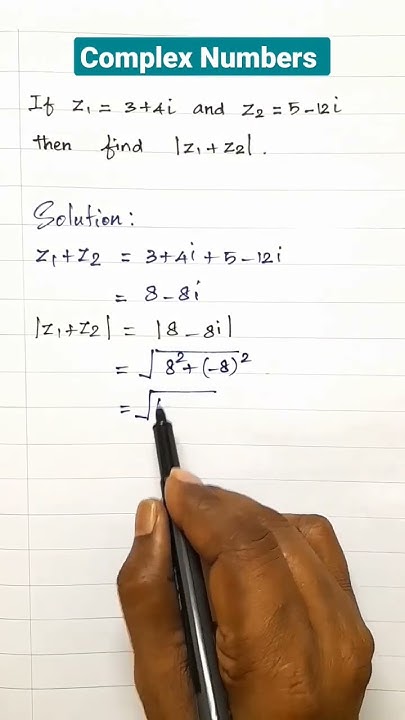 Complex Numbers
If z₁ = 3+4i and z₂ = 5-12i
then find |z₁ + z₂|.
Solution:
z₁+z₂ = 3+4i+5-12i
= 8-8i
|z₁+z₂| = |8-8i|
= √(8²+(-8)²)
= √